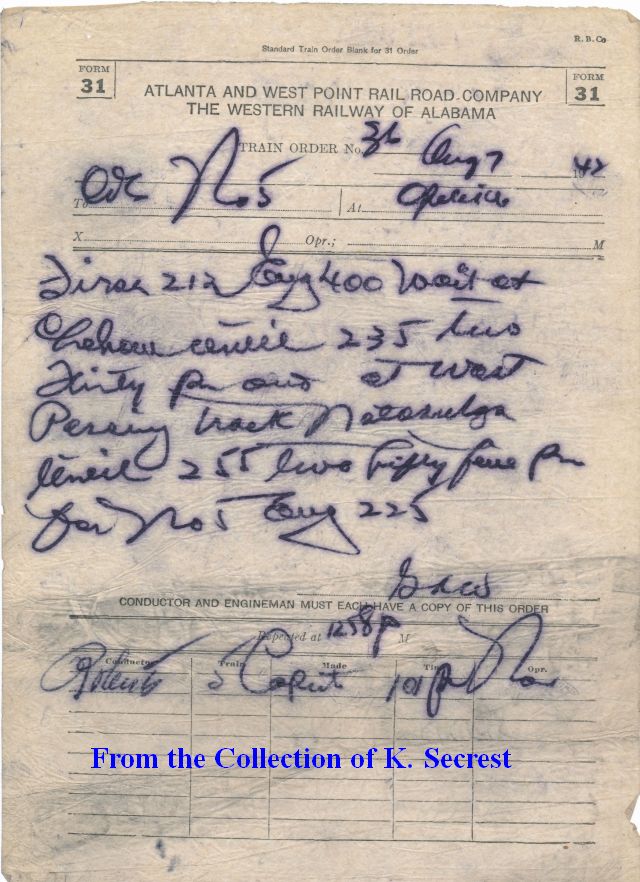 R. B. Co
Standard Train Order Blank for 31 Order
FORM 31
FORM 31
ATLANTA AND WEST POINT RAIL ROAD COMPANY
THE WESTERN RAILWAY OF ALABAMA
TRAIN ORDER No. 36 Aug 7 1942
To C&E No 5 At Opelika
X Opr.; M
212 Eng 400 Wait at
Chehaw until 235 two
thirty five and at West
Passing track Notasulga
Until 255 two fifty five pm
for No 5 Eng 225
CONDUCTOR AND ENGINEMAN MUST EACH HAVE A COPY OF THIS ORDER
Repeated at 1258 p M
Conductor Train Made Time Opr.
Roberts 5 Complete 101 pm
From the Collection of K. Secrest